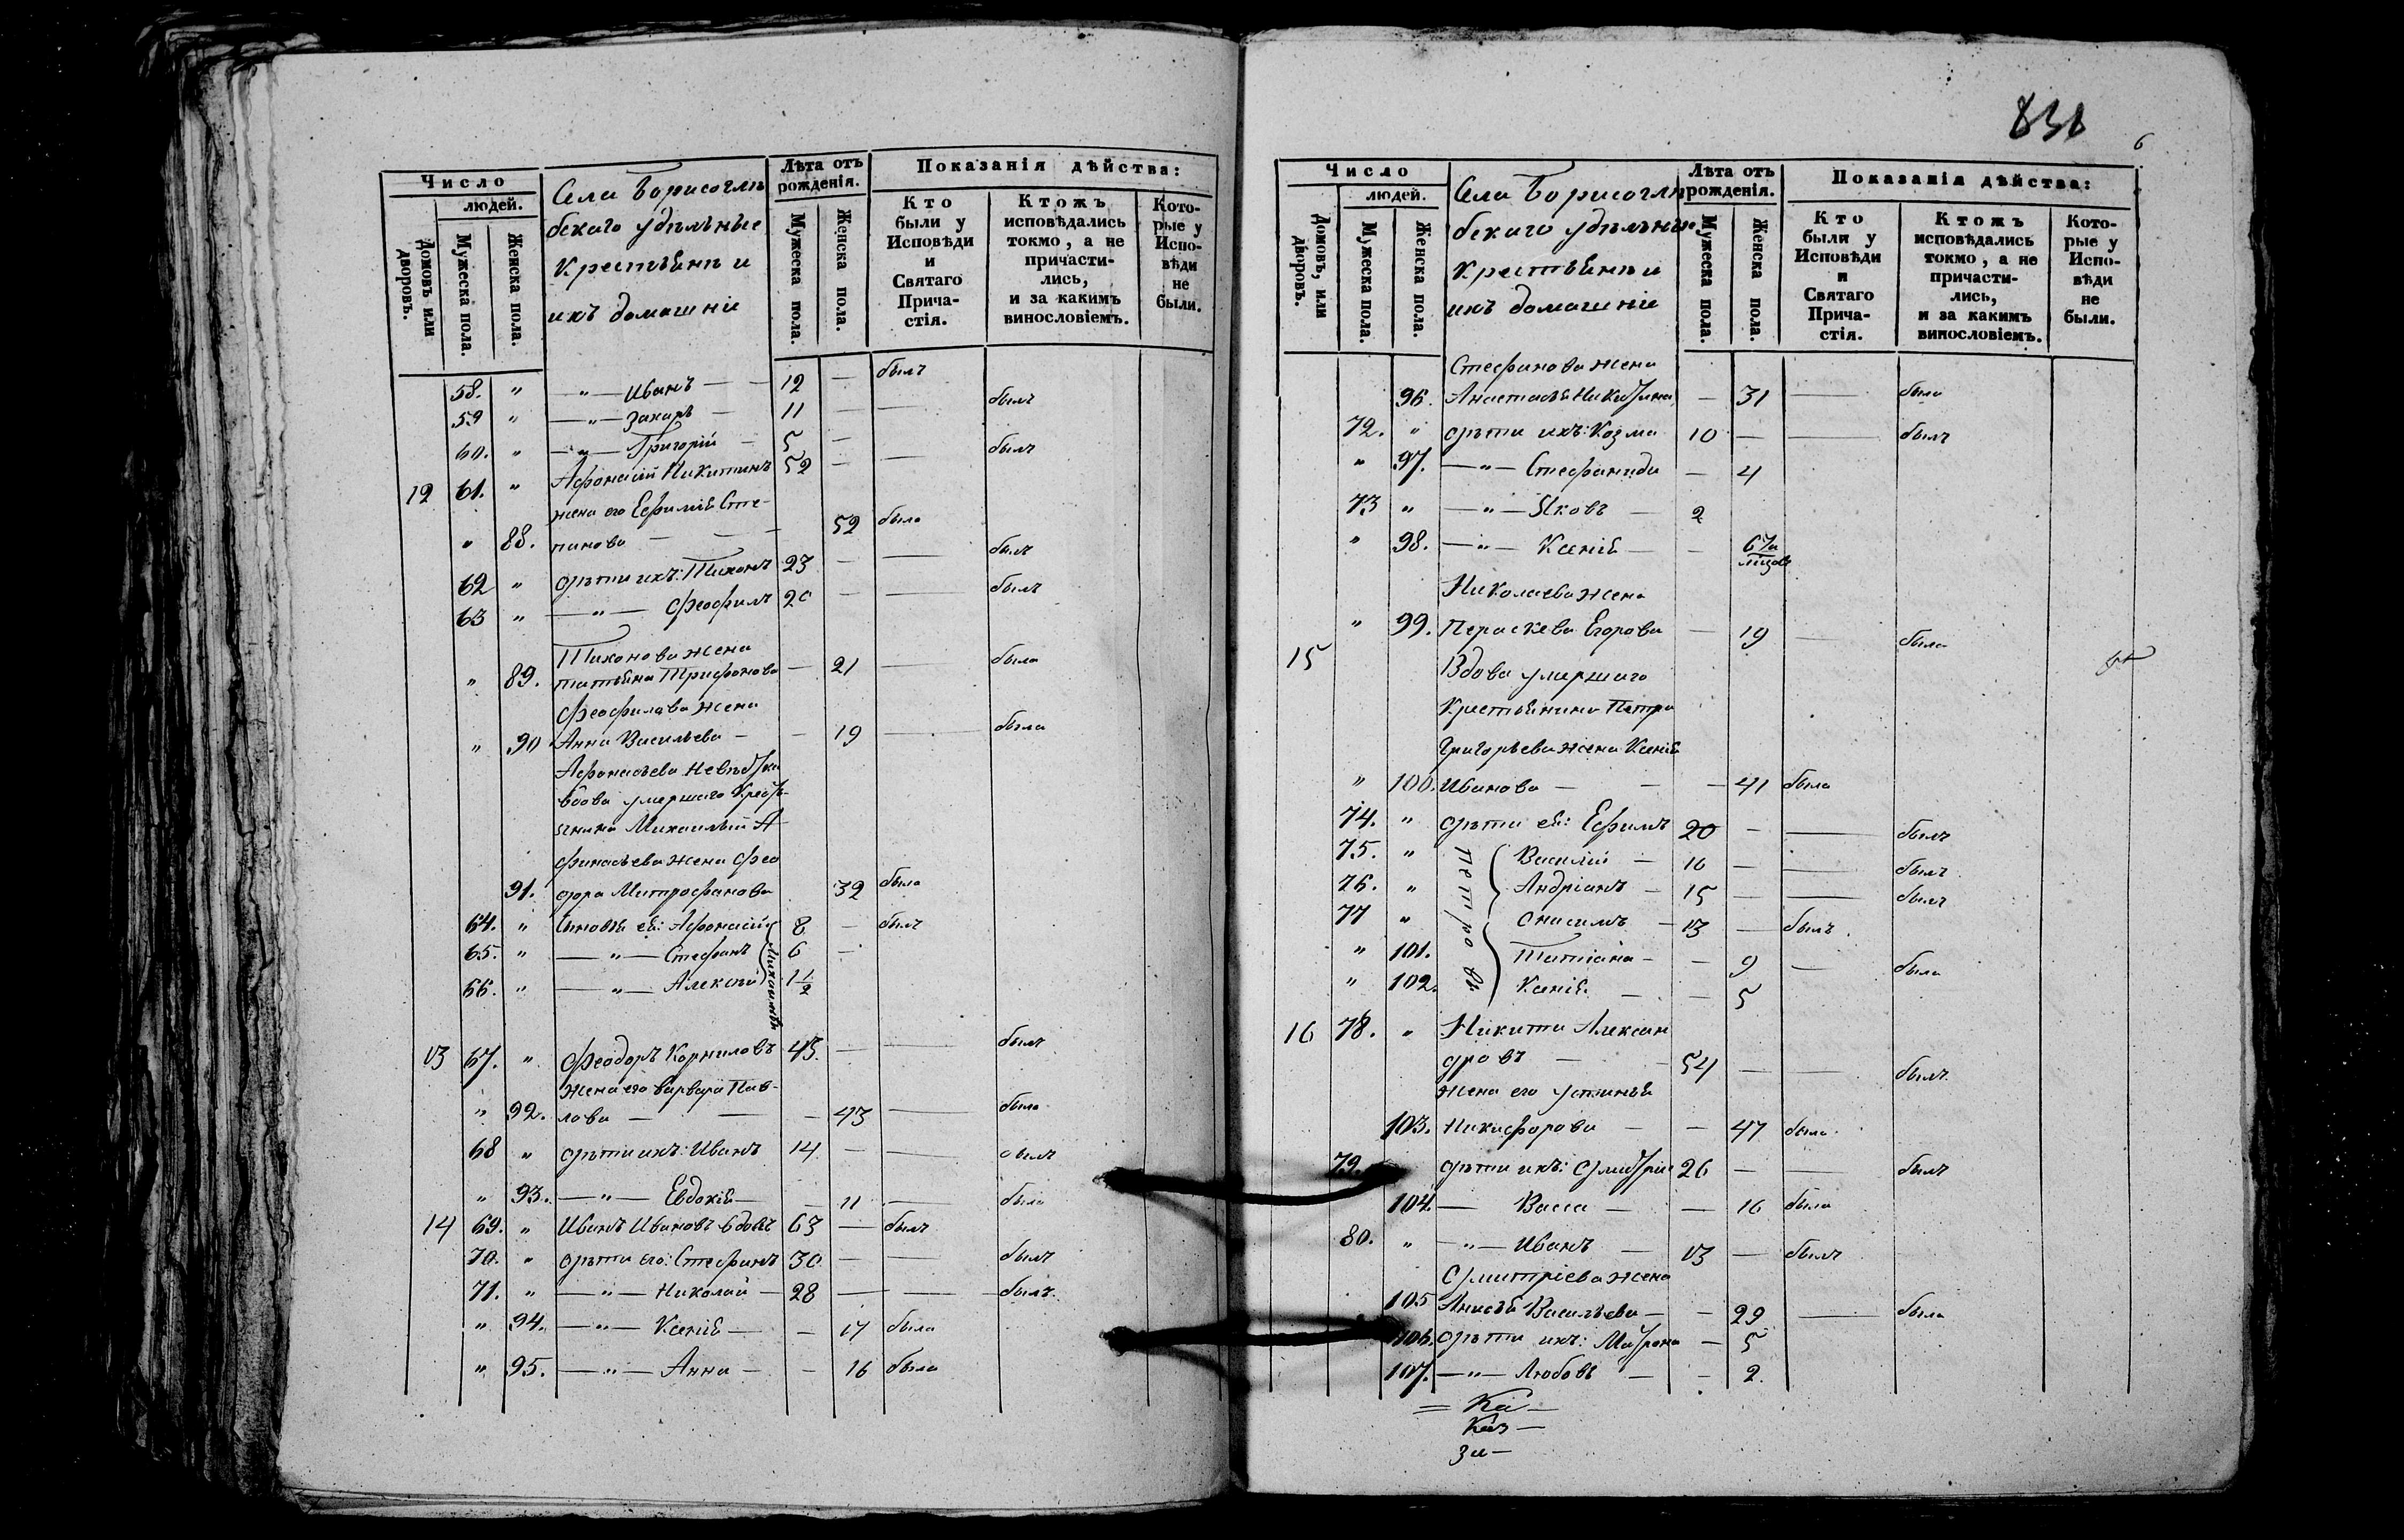 Число
людей.
Домовъ или дворовъ.
Мужеска пола.
Женска пола.
Села Борисоглѣ
бскаго удѣльные
крестьянѣ и
ихъ домашніе
Лѣта отъ
рожденія.
Мужеска пола.
Женска пола.
Показанія дѣйства:
Кто
были у
Исповѣди
и
Святаго
Прича-
стія.
Ктожъ
исповѣдались
токмо, а не
причасти-
лись,
и за какимъ
винословіемъ.
Кото-
рые у
Испо-
вѣди
не
были.
58. " — " — Иванъ — 12 — былъ
59 " — " — Захаръ — 11 — — былъ
60. " — " — Григорій — 5 —
12 61. " Афонасій Никитинъ 52 — — былъ
жена его Ефимія Сте-
" 88. панова — — — 52 была
62 " дѣти ихъ: Тихонъ 23 — — былъ
63 " — " — Феофилъ 20 — — былъ
Тихонова жена
" 89. татьяна Трифонова — 21 — была
Феофилова жена
" 90 Анна Васильева — — 19 — была
Афонасьева невѣстка
вдова умершаго Крест-
янина Михаила А
фанасьева жена Фео
91. дора Митрофанова 32 была
64. " Сыновья ея: Афонасій 8 — былъ
65. " — " — Стефанъ 6 —
66. " — " — Алексѣй 1 1/2
Михаиловы
13 67. " Феодоръ Корниловъ 43. — — былъ
жена его Варвара Пав-
" 92. лова — — — 43 — была
68 " дѣти ихъ: Иванъ 14 — — былъ
" 93. — " — Евдокія — — 11 — была
14 69. " Иванъ Ивановъ вдовъ 63 — былъ
70. " дѣти его: Стефанъ 30 — — былъ
71. " — " — Николай — 28 — — былъ.
" 94. — " — Ксенія — — 17 была
" 95. — " — Анна — — 16 была
838
6
Число
людей.
Домовъ, или дворовъ.
Мужеска пола.
Женска пола.
Села Борисоглѣ
бскаго удѣльные
крестьянѣ и
ихъ домашніе
Лѣта отъ
рожденія.
Мужеска пола.
Женска пола.
Показанія дѣйства:
Кто
были у
Исповѣди
и
Святаго
Прича-
стія.
Ктожъ
исповѣдались
токмо, а не
причасти-
лись,
и за какимъ
винословіемъ.
Кото-
рые у
Испо-
вѣди
не
были.
Стефанова жена
96. Анастасья Никитина — 31 — была
72. " дѣти ихъ: Козма 10 — — былъ
" 97. — " — Стефанида — 4
73 " — " — Яковъ — 2
" 98. — " — Ксенія — — 6 7/м
Николаева жена
" 99. Пераскева Егорова — 19 — была
15 Вдова умершаго
Крестьянина Петра
Григорьева жена Ксенія
" 100. Иванова — — — 41 была
74. " дѣти ея: Ефимъ 20 — — былъ
75. " Василій — 16 — — былъ
76. " Андріанъ — 15 — — былъ
77 " Онисимъ — 13 — былъ.
" 101. Татіана — — 9 — была
" 102. Ксенія — — 5
Петровы
16 78. " Никита Алексан
дровъ — — 54 — — былъ.
жена его Устинья
103. Никифорова — — 47 была.
79. дѣти ихъ: Дмитріи 26 — — былъ
104. — Васса — — 16 была
80. " — " — Иванъ — 13 — былъ
Дмитріева жена
105 Анисья Васильева — — 29 — была
106. дѣти ихъ: Матрона — 5
107. — " — Любовь — — 2.
= Ка —
Каз —
за —